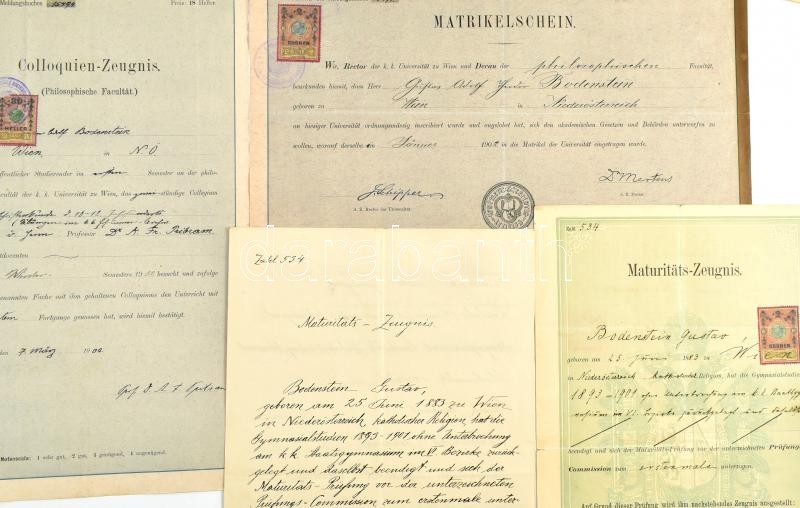 Meldungsbuches
Preis: 18 Heller
Colloquien-Zeugnis.
(Philosophische Facultät.)
HELLER
Bodenstein
Wien in N.Ö
ffentlicher Studierender im Semester an der philo-
acultät der k. k. Universität zu Wien, das stündige Collegium
Professor Dr A. Fr. Pribram
tdocenten
Semesters besucht und zufolge
enannten Fache mit ihm gehaltenen Colloquiums den Unterricht mit
Fortgange genossen hat, wird hiermit bestätigt.
den 7. März 190
Notenscala: 1 sehr gut, 2 gut, 3 genügend, 4 ungenügend.
MATRIKELSCHEIN.
2
KRONEN
Wir, Rector der k. k. Universität zu Wien und Decan der philosophischen Facultät,
beurkunden hiemit, dass Herr Gustav Adolf Bodenstein
geboren zu Wien in Niederösterreich
an hiesiger Universität ordnungsmässig inscribiert wurde und angelobet hat, sich den akademischen Gesetzen und Behörden unterwerfen zu
wollen, worauf derselbe im Jänner 190 in die Matrikel der Universität eingetragen wurde.
J. Schipper
Dr Mertens
d. Z. Rector der Universität.
d. Z. Decan.
Zahl 534
Maturitäts-Zeugnis.
Bodenstein Gustav,
geboren am 25 Juni 1883 zu Wien
in Niederösterreich, katholischer Religion, hat die
Gymnasialstudien 1893-1901 ohne Unterbrechung
am k.k. Staatsgymnasium im VI. Bezirke zurück-
gelegt und daselbst beendigt und sich der
Maturitäts-Prüfung vor der unterzeichneten
Prüfungs-Commission zum erstenmale unter-
Zahl 534
Maturitäts-Zeugnis.
2
KRONEN
Bodenstein Gustav,
geboren am 25. Juni 1883 zu Wi
in Niederösterreich katholischer Religion, hat die Gymnasialstudie
1893-1901 ohne Unterbrechung am k.k. Staatsgy
nasium im VI. Bezirke zurückgelegt und
beendigt und sich der Maturitätsprüfung vor der unterzeichneten Prüfung
Commission zum erstenmale unterzogen.
Auf Grund dieser Prüfung wird ihm nachstehendes Zeugnis ausgestellt:
darabanth